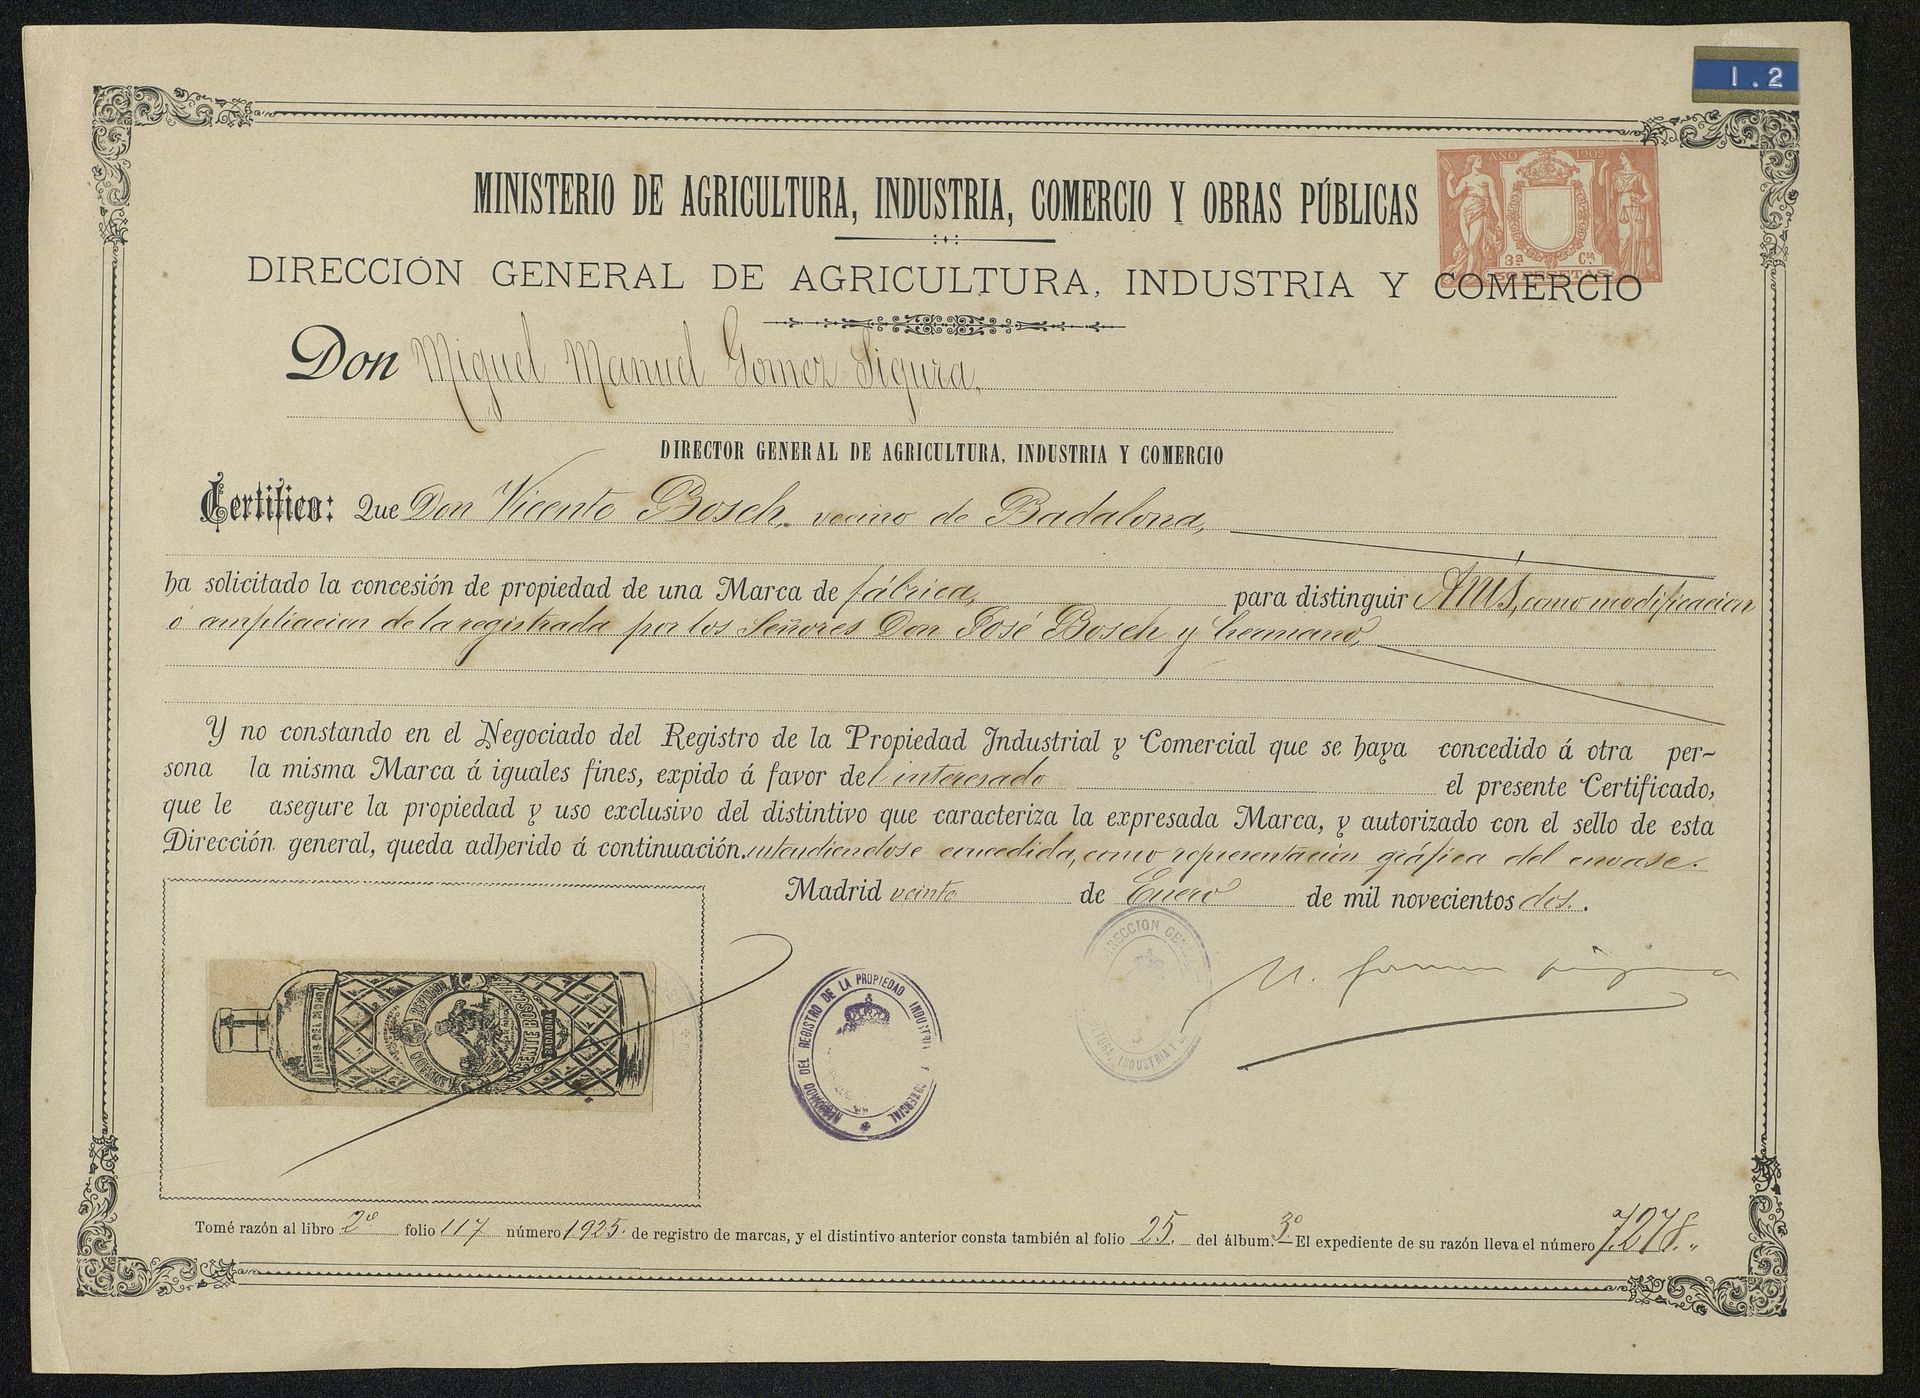 1.2
AÑO 1902
3ª Cª
50 PESETAS
MINISTERIO DE AGRICULTURA, INDUSTRIA, COMERCIO Y OBRAS PÚBLICAS
DIRECCIÓN GENERAL DE AGRICULTURA, INDUSTRIA Y COMERCIO
Don Miguel Manuel Gomez Sigura,
DIRECTOR GENERAL DE AGRICULTURA, INDUSTRIA Y COMERCIO
Certifico: Que Don Vicente Bosch, vecino de Badalona,
ha solicitado la concesión de propiedad de una Marca de fábrica, para distinguir Anís, como modificacion
ó ampliacion de la registrada por los Señores Don José Bosch y hermano,
Y no constando en el Negociado del Registro de la Propiedad Industrial y Comercial que se haya concedido á otra per-
sona la misma Marca á iguales fines, expido á favor del interesado el presente Certificado,
que le asegure la propiedad y uso exclusivo del distintivo que caracteriza la expresada Marca, y autorizado con el sello de esta
Dirección general, queda adherido á continuación. entendiendose concedida, como representación gráfica del envase.
Madrid veinte de Enero de mil novecientos dos.
ANIS DEL MONO
VICENTE BOSCH
BADALONA
NEGOCIADO DEL REGISTRO DE LA PROPIEDAD INDUSTRIAL Y COMERCIAL
DIRECCIÓN GENERAL
INDUSTRIA Y
Tomé razón al libro 2º folio 117 número 1925. de registro de marcas, y el distintivo anterior consta también al folio 25. del álbum. 3º El expediente de su razón lleva el número 7.278.